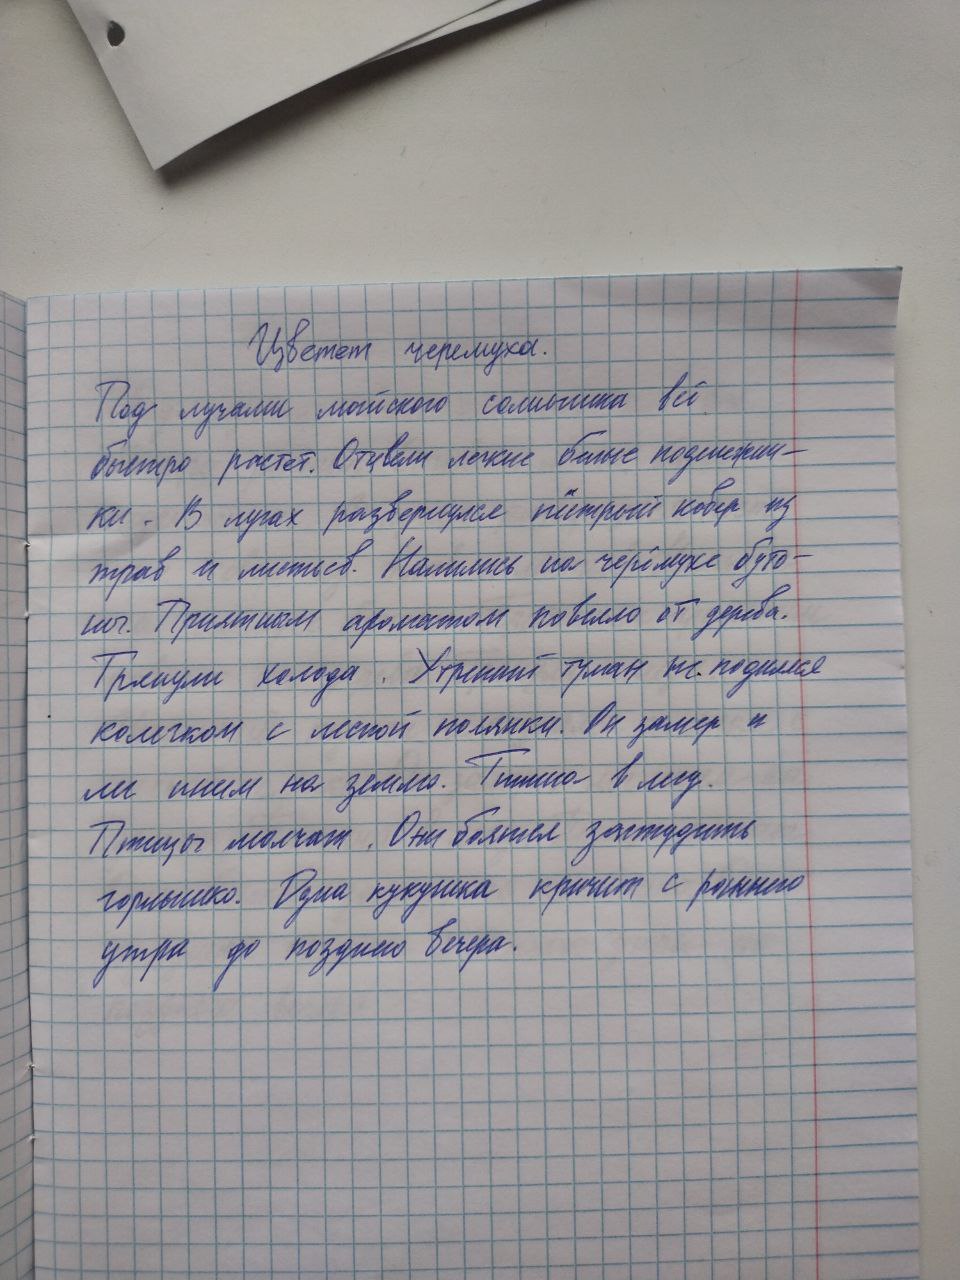 Цветет черемуха.
Под лучами майского солнышка всё
быстро растет. Отцвели легкие белые подснежни-
ки. В лугах развернулся пёстрый ковер из
трав и листьев. Налились на черёмухе буто-
ны. Приятным ароматом повеяло от дерева.
Грянули холода. Утренний туман не поднялся
колечком с лесной полянки. Он замер и
лег инеем на землю. Тишина в лесу.
Птицы молчат. Они боятся застудить
горлышко. Одна кукушка кричит с раннего
утра до позднего вечера.